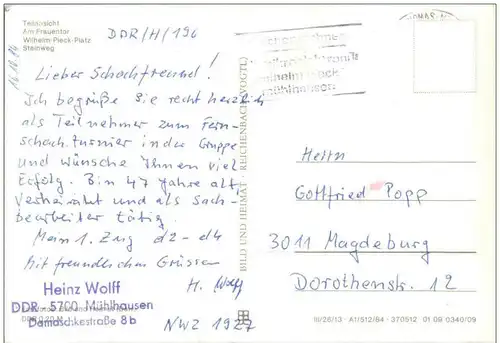 Teilansicht
Am Frauentor
Wilhelm-Pieck-Platz
Steinweg
DDR/H/196
Lieber Schachfreund!
Ich begrüße Sie recht herzlich
als Teilnehmer zum Fern-
schachturnier in der Gruppe
und wünsche Ihnen viel
Erfolg. Bin 47 Jahre alt,
verheiratet und als Sach-
bearbeiter tätig.
Mein 1. Zug d2 - d4
Mit freundlichen Grüssen
H. Wolff
Heinz Wolff
DDR - 5700 Mühlhausen
Damaschkestraße 8b
NWZ 1927
BILD UND HEIMAT REICHENBACH (VOGTL)
Herrn
Gottfried Popp
3011 Magdeburg
Dorotheenstr. 12
III/26/13 · A1/512/84 · 370512 01 09 0340/09